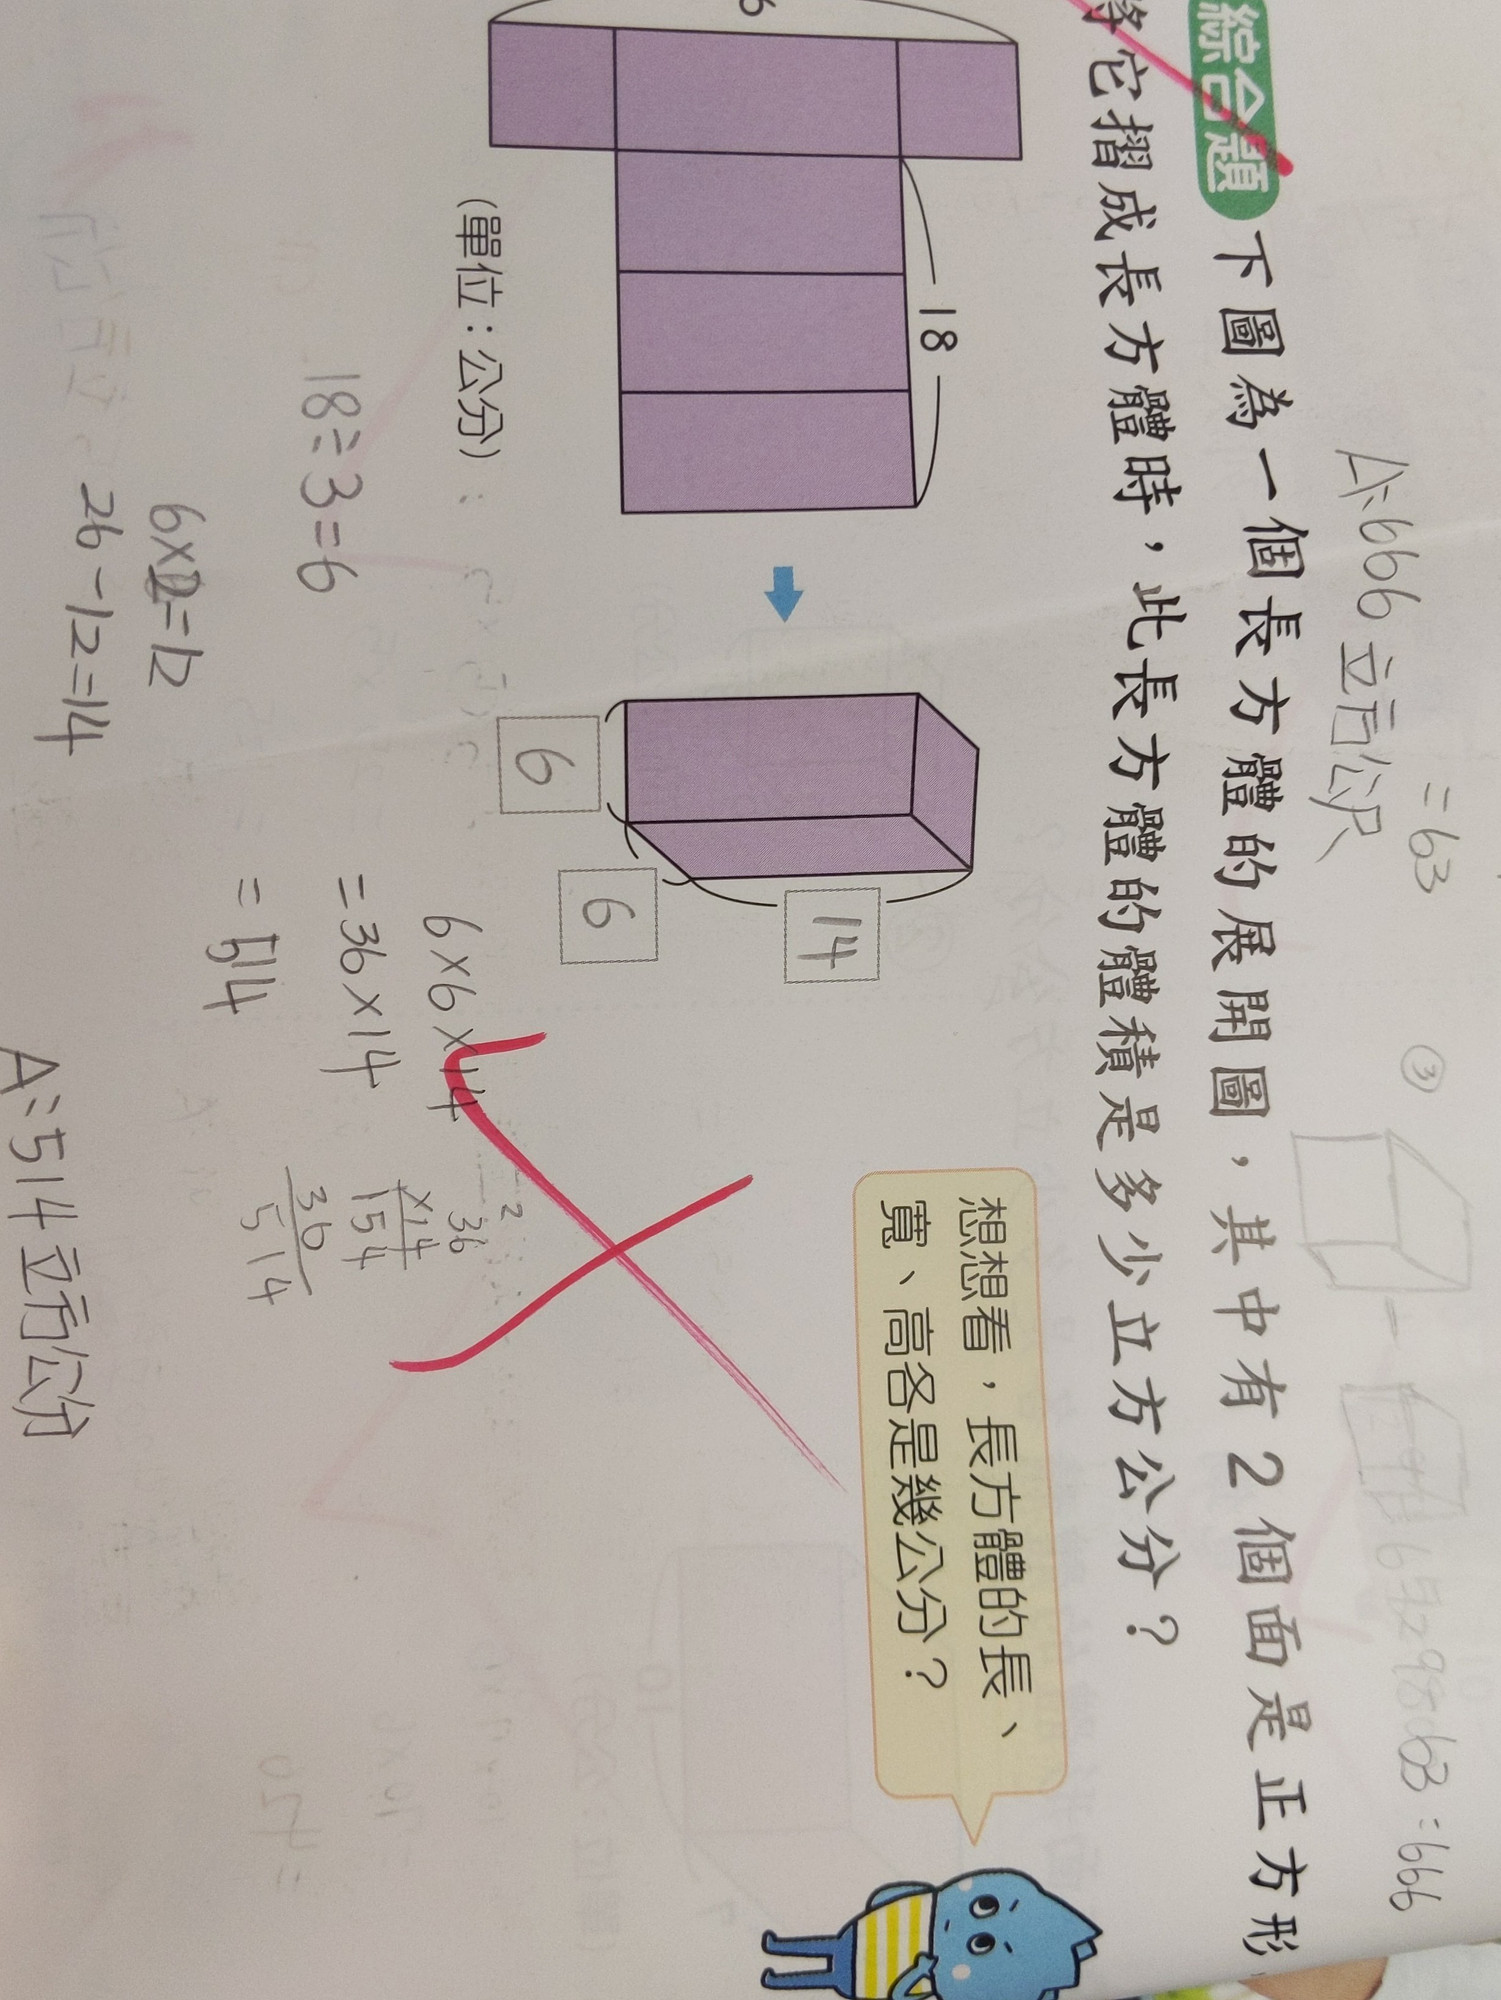 = 63
③
6 6 6
A:666立方公尺
綜合題 下圖為一個長方體的展開圖，其中有2個面是正方形
將它摺成長方體時，此長方體的體積是多少立方公分？
18
想想看，長方體的長、
寬、高各是幾公分？
14
6
6
(單位：公分)
18÷3=6
6×2=12
26-12=14
6×6×14
=36×14
=514
2
36
×14
154
36
514
A:514立方公分